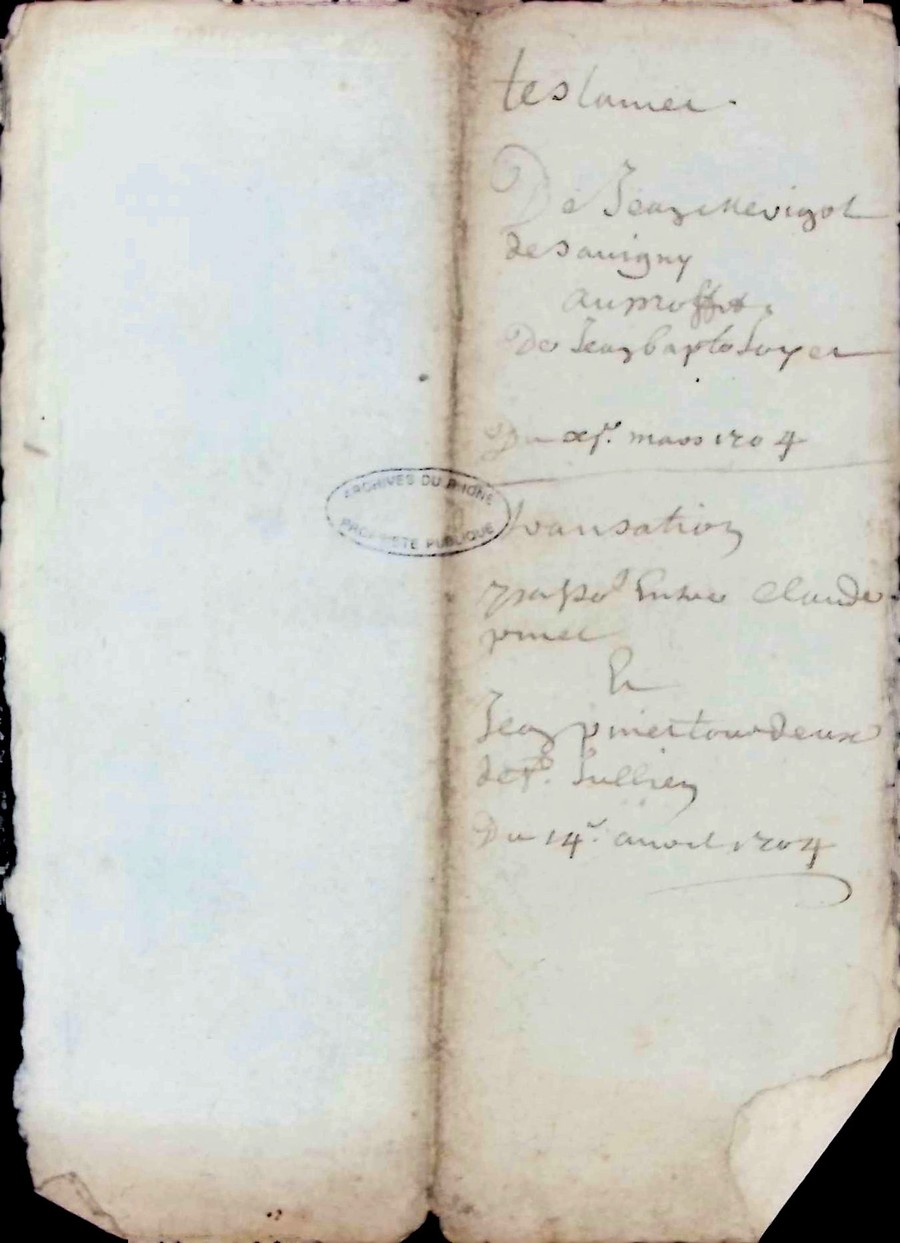 testamet
De Jean Merigot
de Savigny
au proffit
De Jean bapte Soyer
Du xje. mars 1704
ARCHIVES DU RHONE
PROPRIETE PUBLIQUE
transation
Entre Claude
pinet
Et
Jean pinet tous deux
de st. Jullien
Du 14e. avril 1704